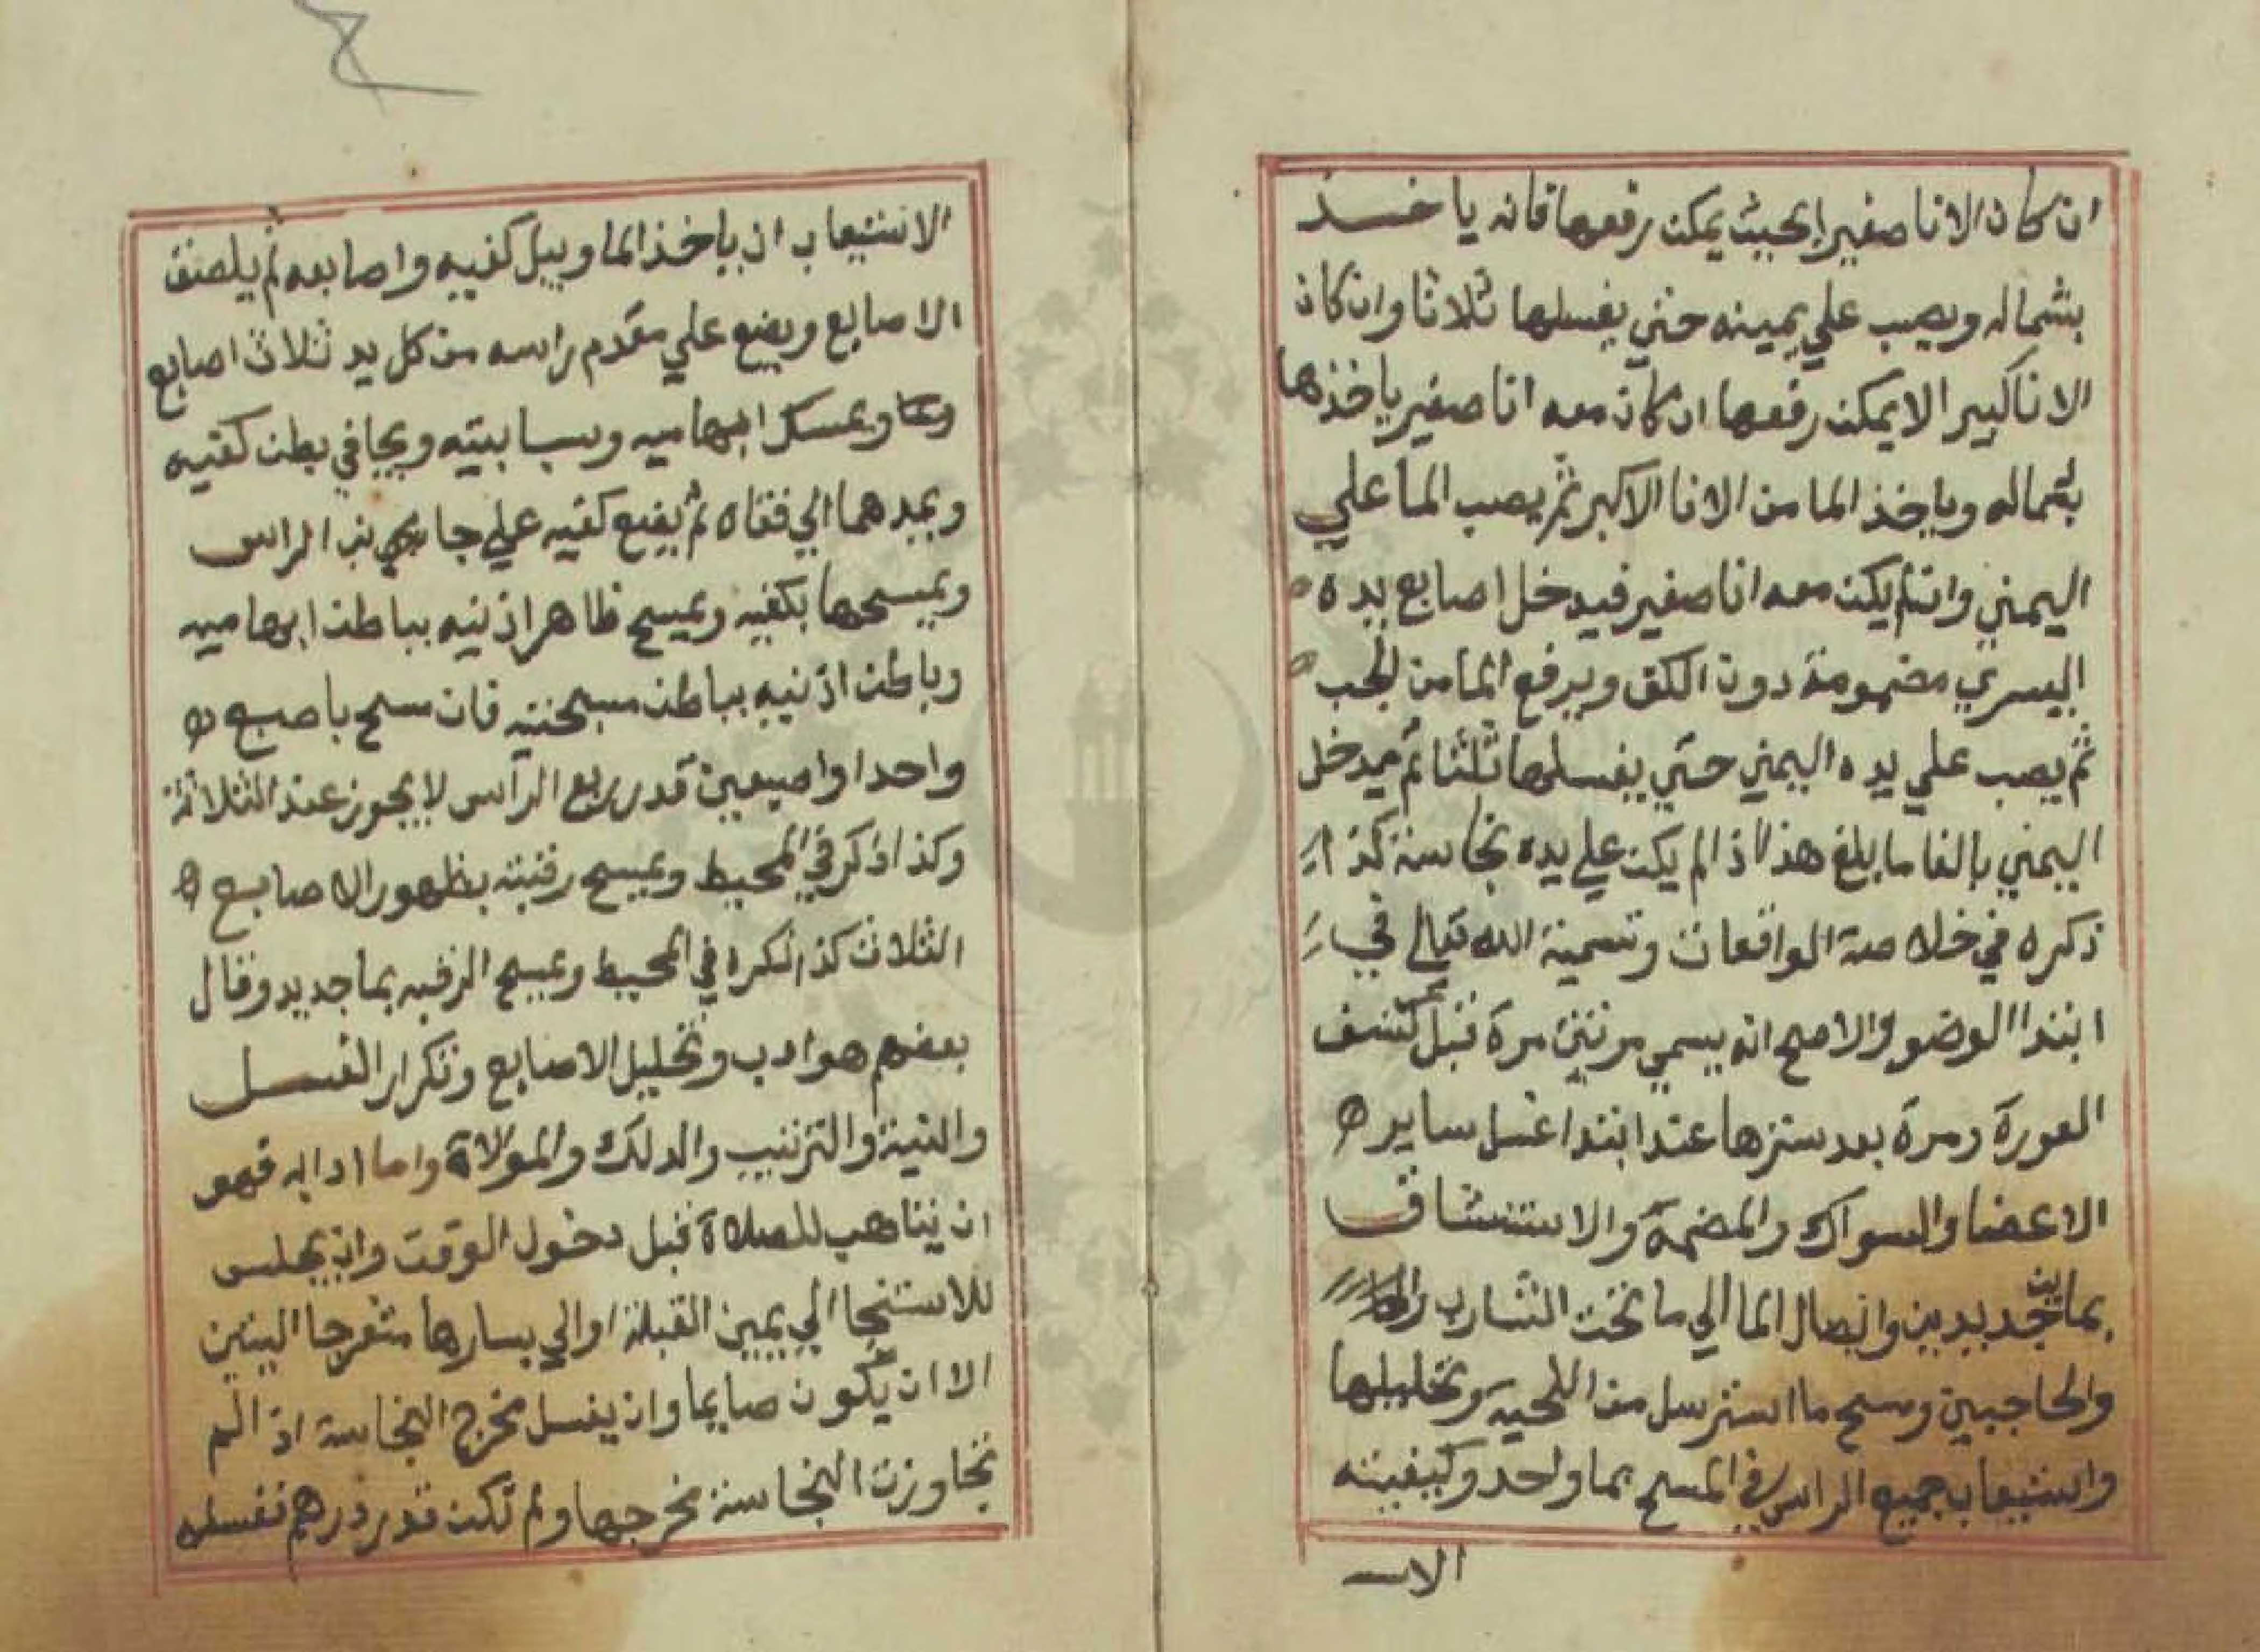 ان كان الانا صغيرا بحيث يمكن رفعها فانه ياخذ
بشماله ويصب علي يمينه حتي يغسلها ثلاثا وان كان
الانا كبيرا لا يمكن رفعها ان كان معه انا صغير ياخذها
بشماله وياخذ الما من الانا الاكبر ثم يصب الما علي
اليمني وان لم يكن معه انا صغير فيدخل اصابع يده
اليسري مضمومة دون الكف ويرفع الما من الجب
ثم يصب علي يده اليمني حتي يغسلها ثلثا ثم يدخل
اليمني بالغا ما بلغ هذا اذا لم يكن علي يده نجاسة كذا
ذكره في خلاصة الواقعات وتسمية الله تعالي في
ابتدا الوضو والاصح انه يسمي مرتين مرة قبل كشف
العورة ومرة بعد سترها عند ابتدا غسل ساير
الاعضا والسواك والمضمضة والاستنشاق
بماين جديدين وايصال الما الي ما تحت الشارب
والحاجبين ومسح ما استرسل من اللحية وتخليلها
واستيعاب جميع الراس في المسح بما واحد وكيفيته
الاست
الاستيعاب ان ياخذ الما ويبل كفيه واصابعه ثم يلصق
الاصابع ويضع علي مقدم راسه من كل يد ثلاث اصابع
ويمسك ابهاميه وسبابتيه ويجافي بطن كفيه
ويمدهما الي قفاه ثم يضع كفيه علي جانبي الراس
ويمسحها بكفيه ويمسح ظاهر اذنيه بباطن ابهاميه
وباطن اذنيه بباطن مسبحتيه فان مسح باصبع
واحد او اصبعين قدر ربع الراس لا يجوز عند الثلاثة
وكذا ذكر في المحيط ويمسح رقبته بظهور الاصابع
الثلاث كذا ذكره في المحيط ويمسح الرقبه بما جديد وقال
بعضهم هو ادب وتخليل الاصابع وتكرار الغسل
والنية والترتيب والدلك والمولاة واما ادابه فهو
ان يتاهب للصلاة قبل دخول الوقت وان يجلس
للاستنجا الي يمين القبلة او الي يسارها متفرجا اليتين
الا ان يكون صايما وان يغسل مخرج النجاسة اذا لم
تجاوزت النجاسة مخرجها ولم تكن قدر درهم فغسله